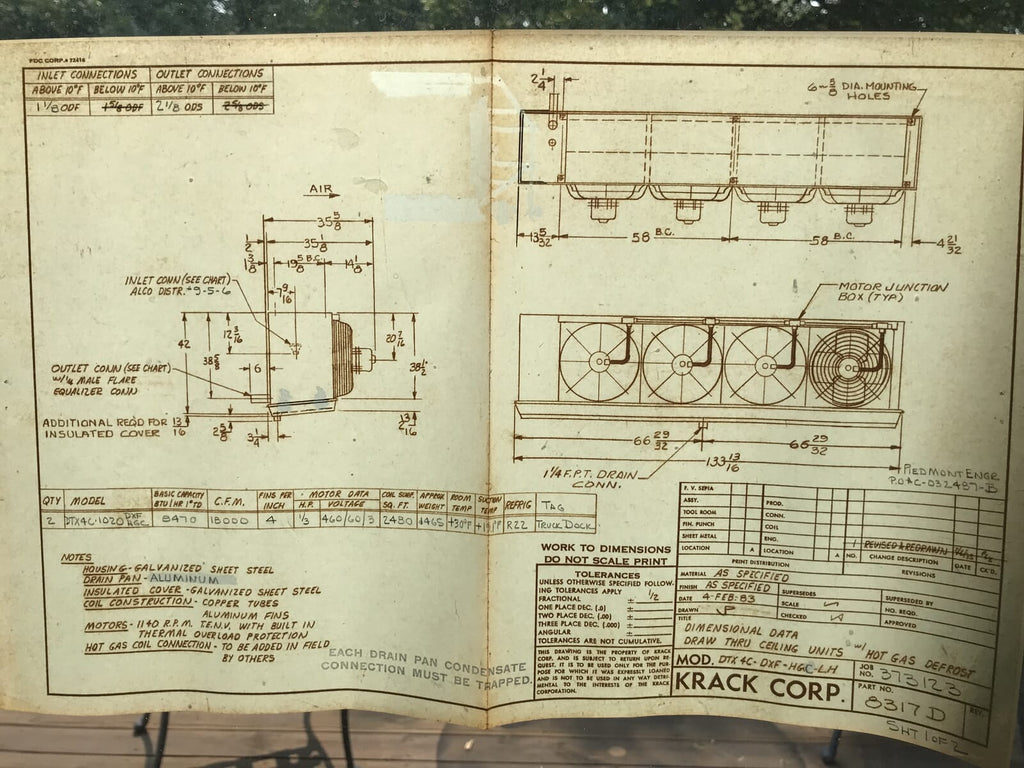 PDC CORP. # 72416
INLET CONNECTIONS OUTLET CONNECTIONS
ABOVE 10°F BELOW 10°F ABOVE 10°F BELOW 10°F
1 1/8 ODF 1 5/8 ODF 2 1/8 ODS 2 5/8 ODS
2 1/4
6-5/8 DIA. MOUNTING
HOLES
13 5/32
58 B.C.
58 B.C.
4 21/32
AIR
35 5/8
1/2
35 1/8
1 3/8
19 5/8 B.C.
14 1/8
INLET CONN (SEE CHART)
ALCO DISTR. #9-5-6
7 9/16
42
38 5/8
12 3/16
20 7/16
38 1/2
OUTLET CONN (SEE CHART)
W/ 1/4 MALE FLARE
EQUALIZER CONN
6
ADDITIONAL REQD FOR 13/16
INSULATED COVER
2 5/8
3 1/4
2 13/16
MOTOR JUNCTION
BOX (TYP)
66 29/32
66 29/32
133 13/16
1 1/4 F.P.T. DRAIN
CONN.
PIEDMONT ENGR
P.O # C-032487-B
QTY MODEL BASIC CAPACITY BTU/HR 1° TD C.F.M. FINS PER INCH MOTOR DATA H.P. VOLTAGE COIL SURF. SQ. FT. APPROX WEIGHT ROOM TEMP SUCTION TEMP REFRIG TAG
2 DTX4C-1020 DXF HGC 8470 18000 4 1/3 460/60/3 2480 1465 +30°F R22 TRUCK DOCK
NOTES
HOUSING - GALVANIZED SHEET STEEL
DRAIN PAN - ALUMINUM
INSULATED COVER - GALVANIZED SHEET STEEL
COIL CONSTRUCTION - COPPER TUBES
ALUMINUM FINS
MOTORS - 1140 R.P.M. T.E.N.V. WITH BUILT IN
THERMAL OVERLOAD PROTECTION
HOT GAS COIL CONNECTION - TO BE ADDED IN FIELD
BY OTHERS
EACH DRAIN PAN CONDENSATE
CONNECTION MUST BE TRAPPED.
WORK TO DIMENSIONS
DO NOT SCALE PRINT
TOLERANCES
UNLESS OTHERWISE SPECIFIED FOLLOW-
ING TOLERANCES APPLY
FRACTIONAL ± 1/2
ONE PLACE DEC. (.0) ±
TWO PLACE DEC. (.00) ±
THREE PLACE DEC. (.000) ±
ANGULAR ±
TOLERANCES ARE NOT CUMULATIVE.
THIS DRAWING IS THE PROPERTY OF KRACK
CORP. AND IS SUBJECT TO RETURN UPON RE-
QUEST. IT IS TO BE USED ONLY FOR THE PUR-
POSE FOR WHICH IT WAS EXPRESSLY LOANED
AND IS NOT TO BE USED IN ANY WAY DETRI-
MENTAL TO THE INTERESTS OF THE KRACK
CORPORATION.
F. V. SEPIA
ASSY. PROD.
TOOL ROOM CONN.
FIN. PUNCH COIL
SHEET METAL ENG. 1 REVISED & REDRAWN
LOCATION A LOCATION A NO. CHANGE DESCRIPTION DATE CK'D.
PRINT DISTRIBUTION REVISIONS
MATERIAL AS SPECIFIED
FINISH AS SPECIFIED SUPERSEDES SUPERSEDED BY
DATE 4-FEB-83 SCALE NO. REQD.
DRAWN JP CHECKED APPROVED
TITLE
DIMENSIONAL DATA
DRAW THRU CEILING UNITS W/ HOT GAS DEFROST
MOD. DTX4C-DXF-HGC-LH JOB NO. 373123
KRACK CORP. PART NO. 8317D REV.
SHT 1 OF 2